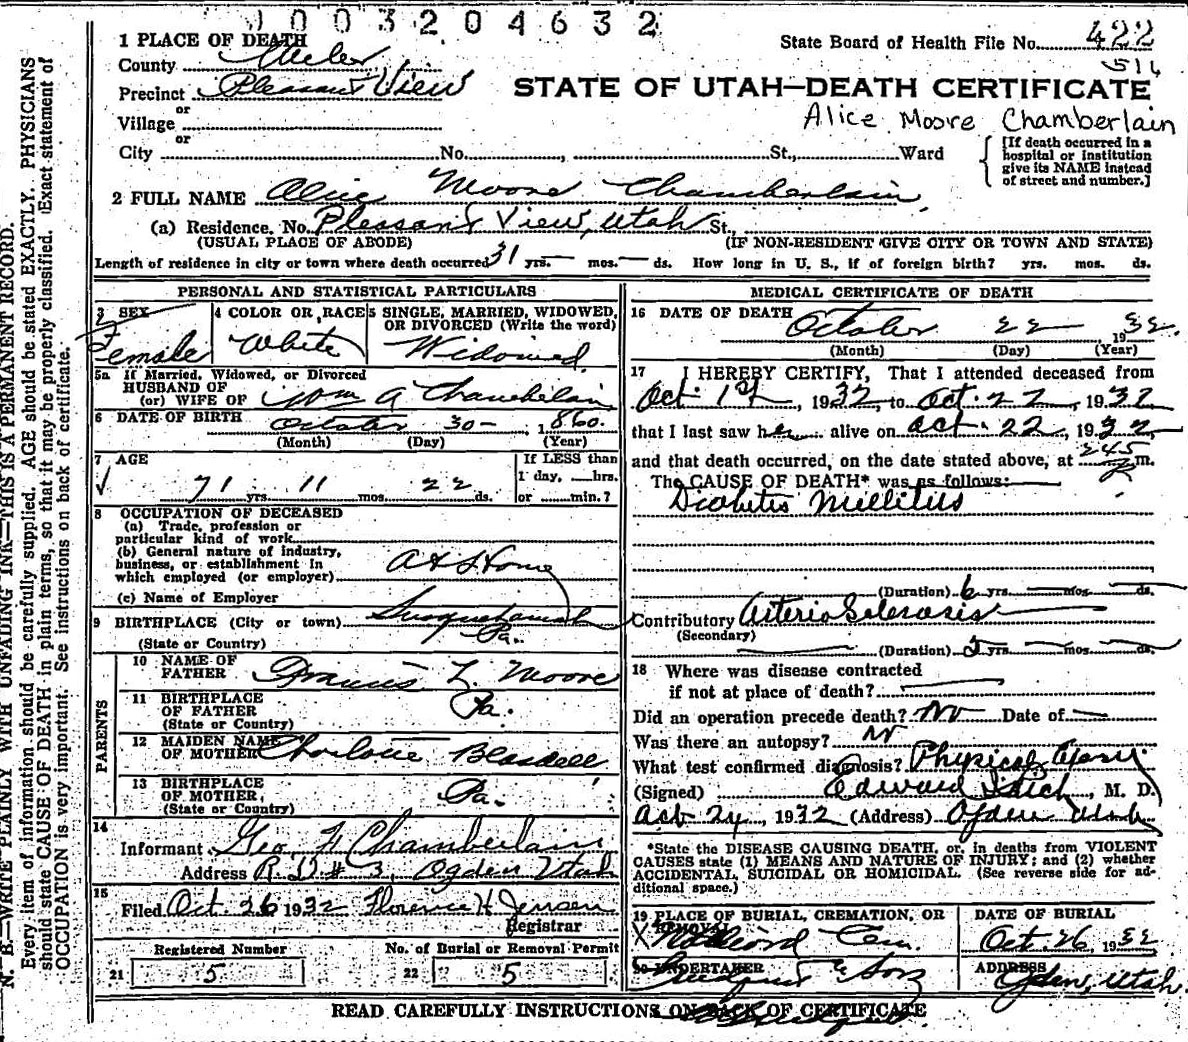 1003204632
1 PLACE OF DEATH
County Weber
State Board of Health File No. 422
514
Precinct Pleasant View
STATE OF UTAH—DEATH CERTIFICATE
or
Village
Alice Moore Chamberlain
or
City No. , St., Ward
[If death occurred in a hospital or institution give its NAME instead of street and number.]
2 FULL NAME Alice Moore Chamberlain
(a) Residence. No. Pleasant View, Utah St.,
(USUAL PLACE OF ABODE) (IF NON-RESIDENT GIVE CITY OR TOWN AND STATE)
Length of residence in city or town where death occurred 31 yrs. — mos. — ds. How long in U. S., if of foreign birth? yrs. mos. ds.
PERSONAL AND STATISTICAL PARTICULARS
3 SEX Female
4 COLOR OR RACE White
5 SINGLE, MARRIED, WIDOWED, OR DIVORCED (Write the word) Widowed
5a If Married, Widowed, or Divorced
HUSBAND OF
(or) WIFE OF Wm A Chamberlain
6 DATE OF BIRTH October 30 — 1860.
(Month) (Day) (Year)
7 AGE
If LESS than
1 day, hrs.
or min.?
71 yrs. 11 mos. 22 ds.
8 OCCUPATION OF DECEASED
(a) Trade, profession or
particular kind of work
(b) General nature of industry,
business, or establishment in
which employed (or employer) At Home
(c) Name of Employer
9 BIRTHPLACE (City or town) Susquehannah
(State or Country) Pa.
PARENTS
10 NAME OF FATHER Francis L. Moore
11 BIRTHPLACE OF FATHER (State or Country) Pa.
12 MAIDEN NAME OF MOTHER Charlotte Blasdell
13 BIRTHPLACE OF MOTHER, (State or Country) Pa.
14
Informant Geo. Chamberlain
Address R.D.# 3, Ogden Utah
15
Filed Oct. 26 1932 Florence H Jensen
Registrar
Registered Number No. of Burial or Removal Permit
21 5 22 5
MEDICAL CERTIFICATE OF DEATH
16 DATE OF DEATH October 22 1932.
(Month) (Day) (Year)
17 I HEREBY CERTIFY, That I attended deceased from
Oct 1st, 1932, to Oct. 22, 1932
that I last saw her alive on Oct. 22, 1932,
and that death occurred, on the date stated above, at 245 P m.
The CAUSE OF DEATH* was as follows:
Diabetis Mellitus
(Duration) 6 yrs. — mos. — ds.
Contributory Arterio Sclerosis
(Secondary)
(Duration) yrs. — mos. — ds.
18 Where was disease contracted
if not at place of death?
Did an operation precede death? No Date of —
Was there an autopsy? No
What test confirmed diagnosis? Physical
(Signed) Edward M. D.
Oct 24, 1932 (Address) Ogden Utah
*State the DISEASE CAUSING DEATH, or, in deaths from VIOLENT
CAUSES state (1) MEANS AND NATURE OF INJURY; and (2) whether
ACCIDENTAL, SUICIDAL OR HOMICIDAL. (See reverse side for ad-
ditional space.)
19 PLACE OF BURIAL, CREMATION, OR REMOVAL Cem.
DATE OF BURIAL Oct. 26, 1932
20 UNDERTAKER & Sons
ADDRESS Ogden, Utah.
READ CAREFULLY INSTRUCTIONS ON BACK OF CERTIFICATE
N. B.—WRITE PLAINLY WITH UNFADING INK—THIS IS A PERMANENT RECORD.
Every item of information should be carefully supplied. AGE should be stated EXACTLY. PHYSICIANS
should state CAUSE OF DEATH in plain terms, so that it may be properly classified. Exact statement of
OCCUPATION is very important. See instructions on back of certificate.